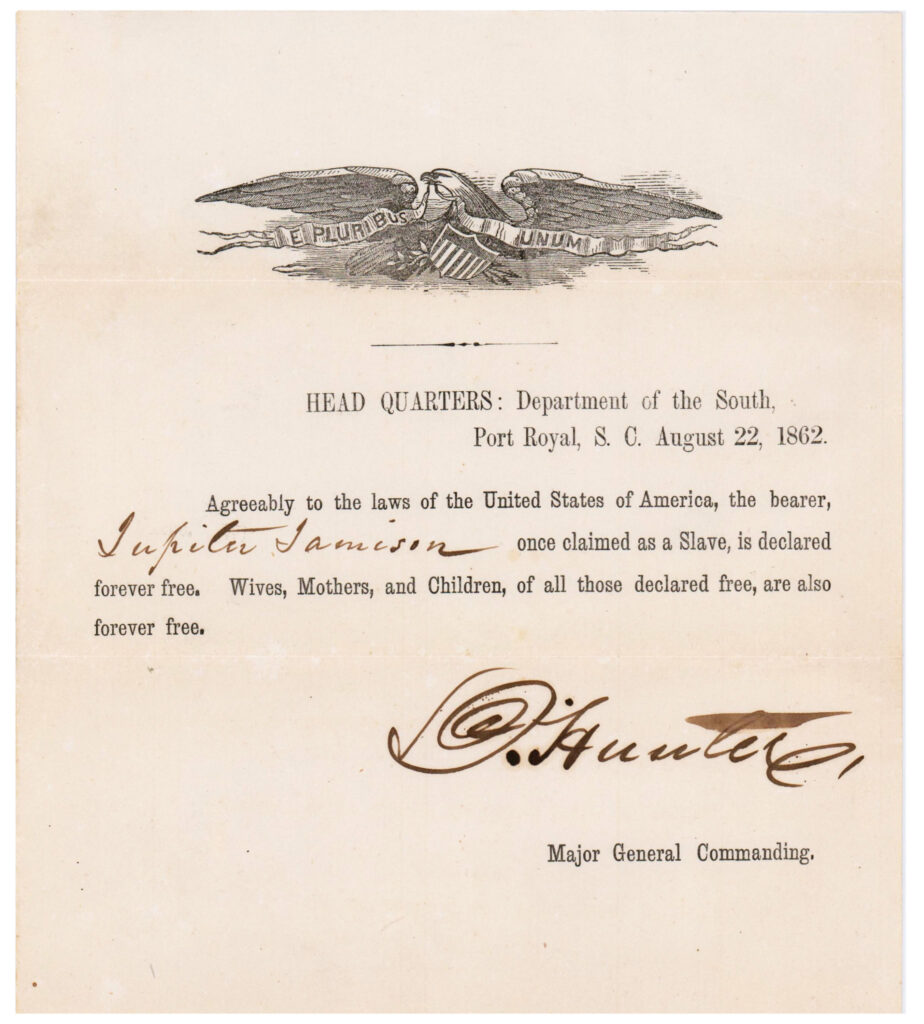 E PLURIBUS UNUM
HEAD QUARTERS: Department of the South,
Port Royal, S. C. August 22, 1862.
Agreeably to the laws of the United States of America, the bearer,
Jupiter Jamison once claimed as a Slave, is declared
forever free. Wives, Mothers, and Children, of all those declared free, are also
forever free.
D. Hunter,
Major General Commanding.